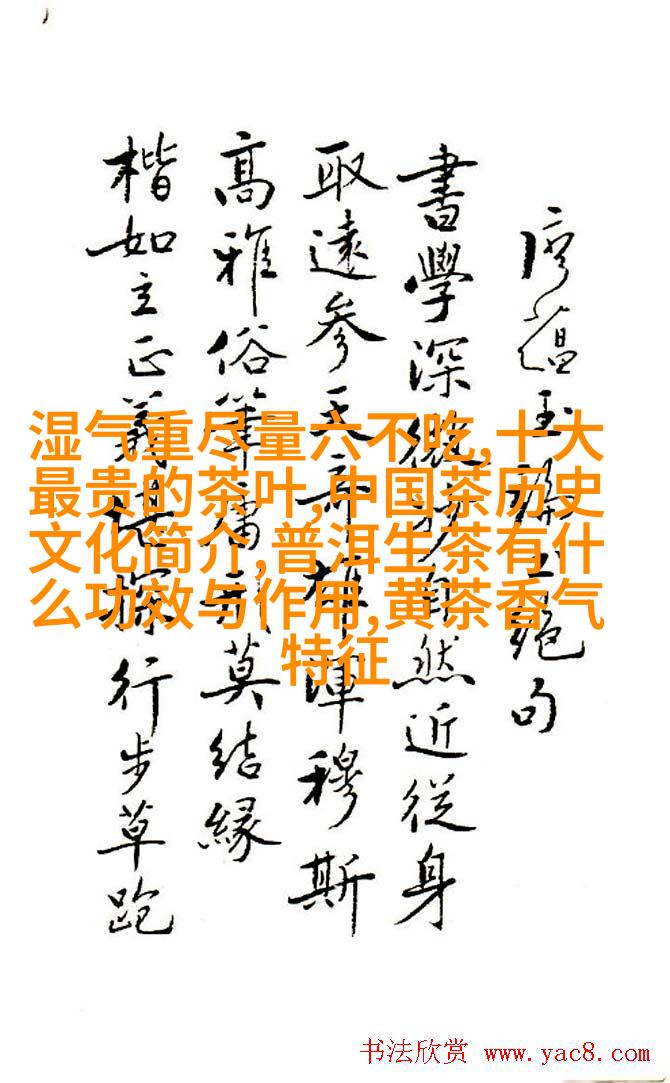 廖蘊玉論書絕句
書學深微妙自然近從身
取遠參天雄渾穆斯
高雅俗筆莫結緣
楷如立正探行步草跑
湿气重尽量六不吃,十大
最贵的茶叶,中国茶历史
文化简介,普洱生茶有什
么功效与作用,黄茶香气
特征
书法欣赏 www.yac8.com